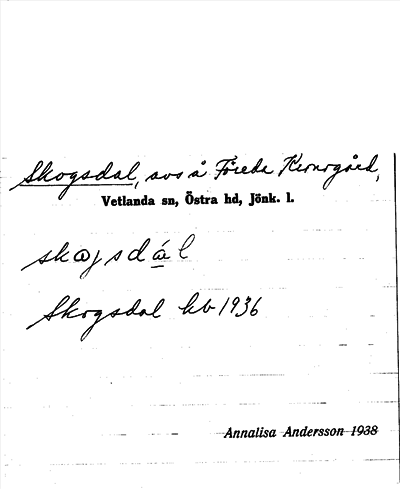 Skogsdal, avs å Föreda Kernegård,
Vetlanda sn, Östra hd, Jönk. l.
skɷjsdá̱l
Skogsdal kb 1936
Annalisa Andersson 1938